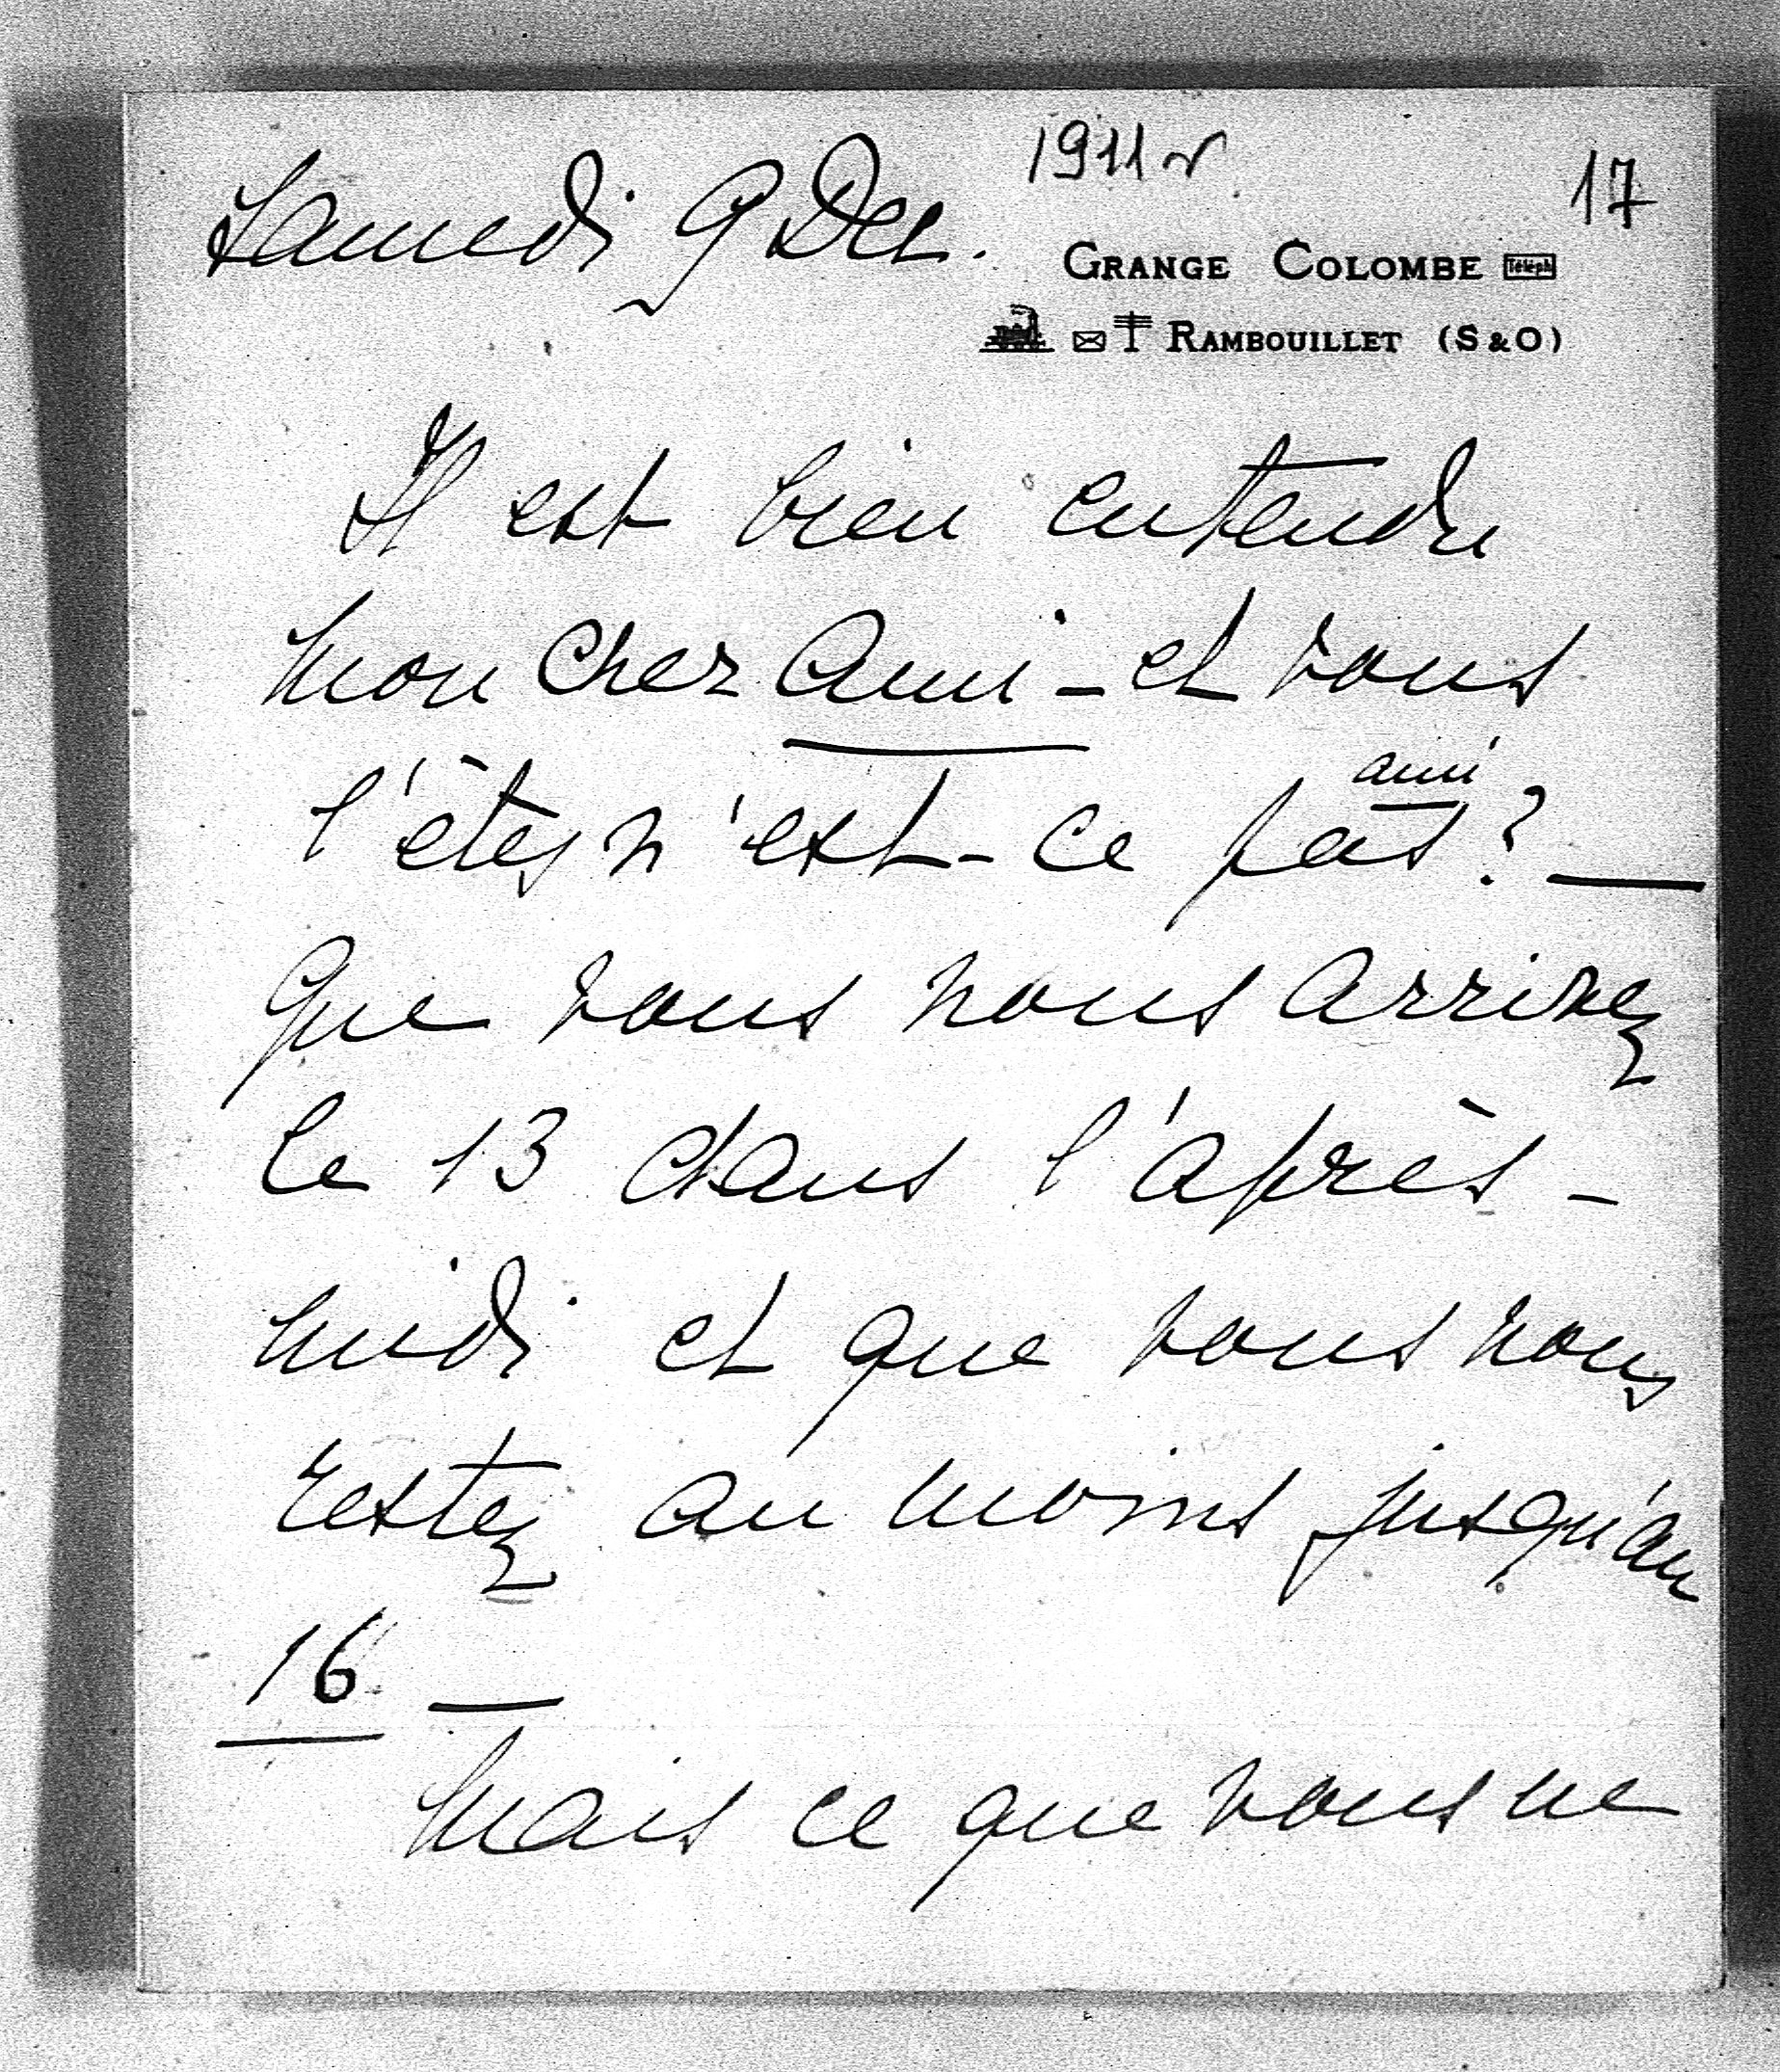 1911
17
Samedi 9 Dec.
GRANGE COLOMBE Téléph
RAMBOUILLET (S & O)
Il est bien entendu
mon cher Ami - et vous
l'êtes n'est-ce pas ami ? —
que vous nous arrivez
le 13 dans l'après-
midi et que vous nous
restez au moins jusqu'au
16 —
Mais ce que vous ne